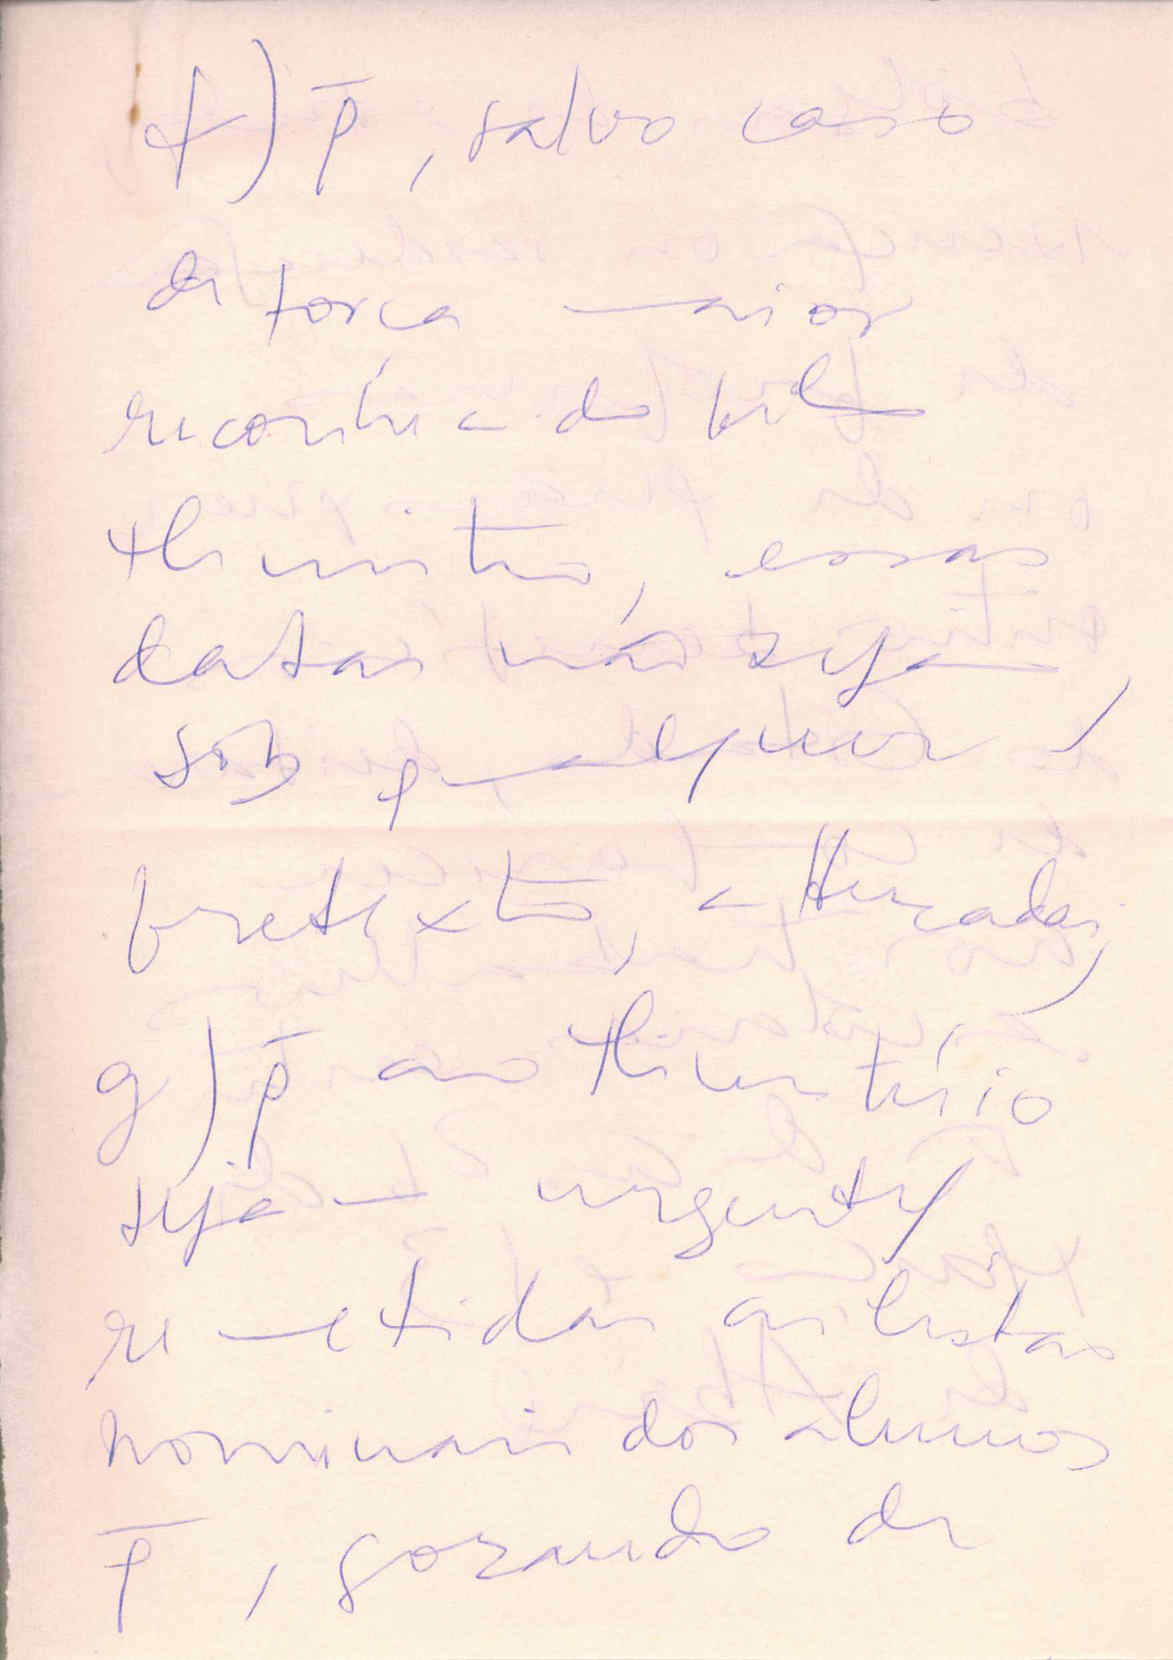 f) p̄, salvo caso
de força maior
reconhecido pelo
Ministério, essas
datas não sejam,
sob qualquer
pretexto, alteradas;
g) p̄ ao Ministério
sejam urgentes
remetidas as listas
nominais dos alunos
p̄, gozando de